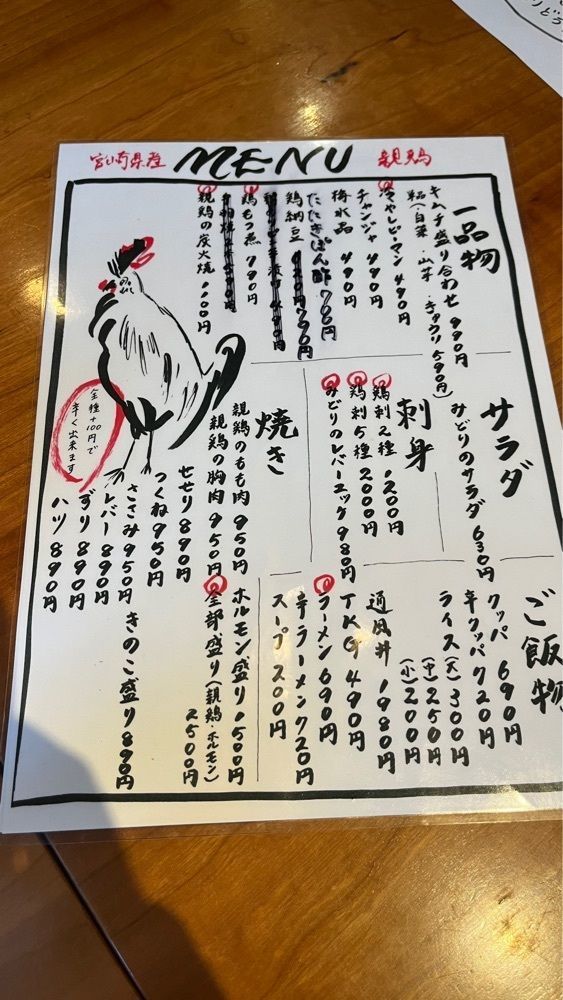 宮崎県産 MENU 親鶏
一品物
キムチ盛り合わせ 990円
(白菜・山芋・きゅうり 590円)
冷やしピーマン 490円
チャンジャ 490円
梅水晶 490円
たたきぽん酢 700円
鶏納豆
鶏もつ煮 790円
親鶏の炭火焼 1100円
サラダ
みどりのサラダ 630円
刺身
鶏刺2種 1200円
鶏刺5種 2000円
みどりのレバーユッケ 980円
焼き
親鶏のもも肉 950円
親鶏の胸肉 950円
せせり 890円
つくね 950円
ささみ 950円
レバー 890円
ずり 890円
ハツ 890円
ホルモン盛り 1500円
全部盛り(親鶏・ホルモン) 2500円
きのこ盛り 890円
全種+100円で
辛く出来ます
ご飯物
クッパ 690円
辛クッパ 720円
ライス(大) 300円
(中) 250円
(小) 200円
通風丼 1980円
TKG 490円
ラーメン 690円
辛ラーメン 720円
スープ 200円